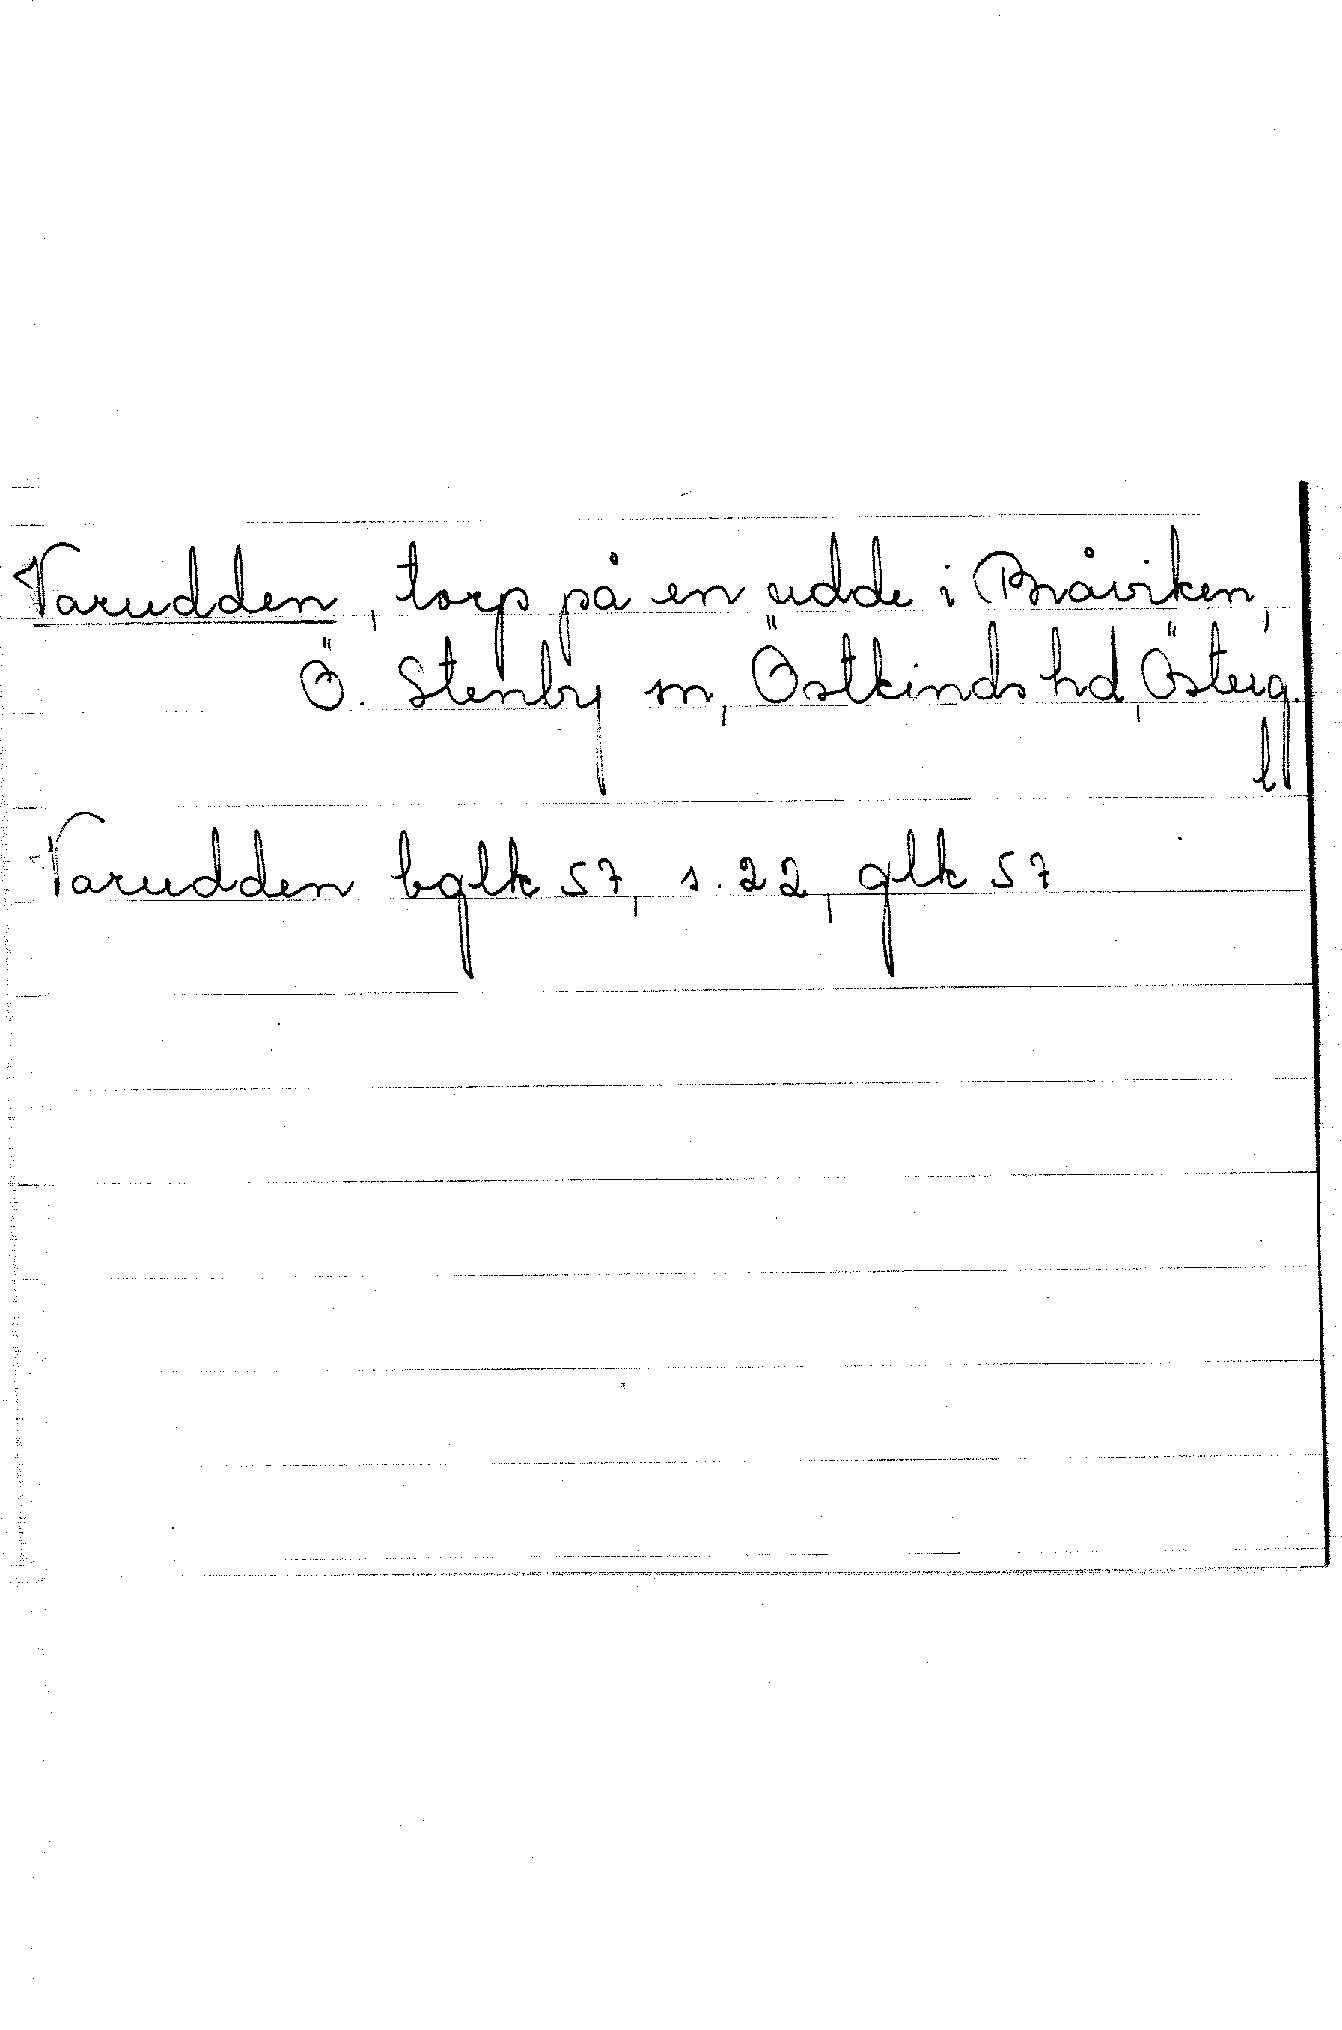 Varudden, torp på en udde i Bråviken,
Ö. Stenby sn, Östkinds hd, Österg.
l
Varudden bglk 57, s. 22, glk 57